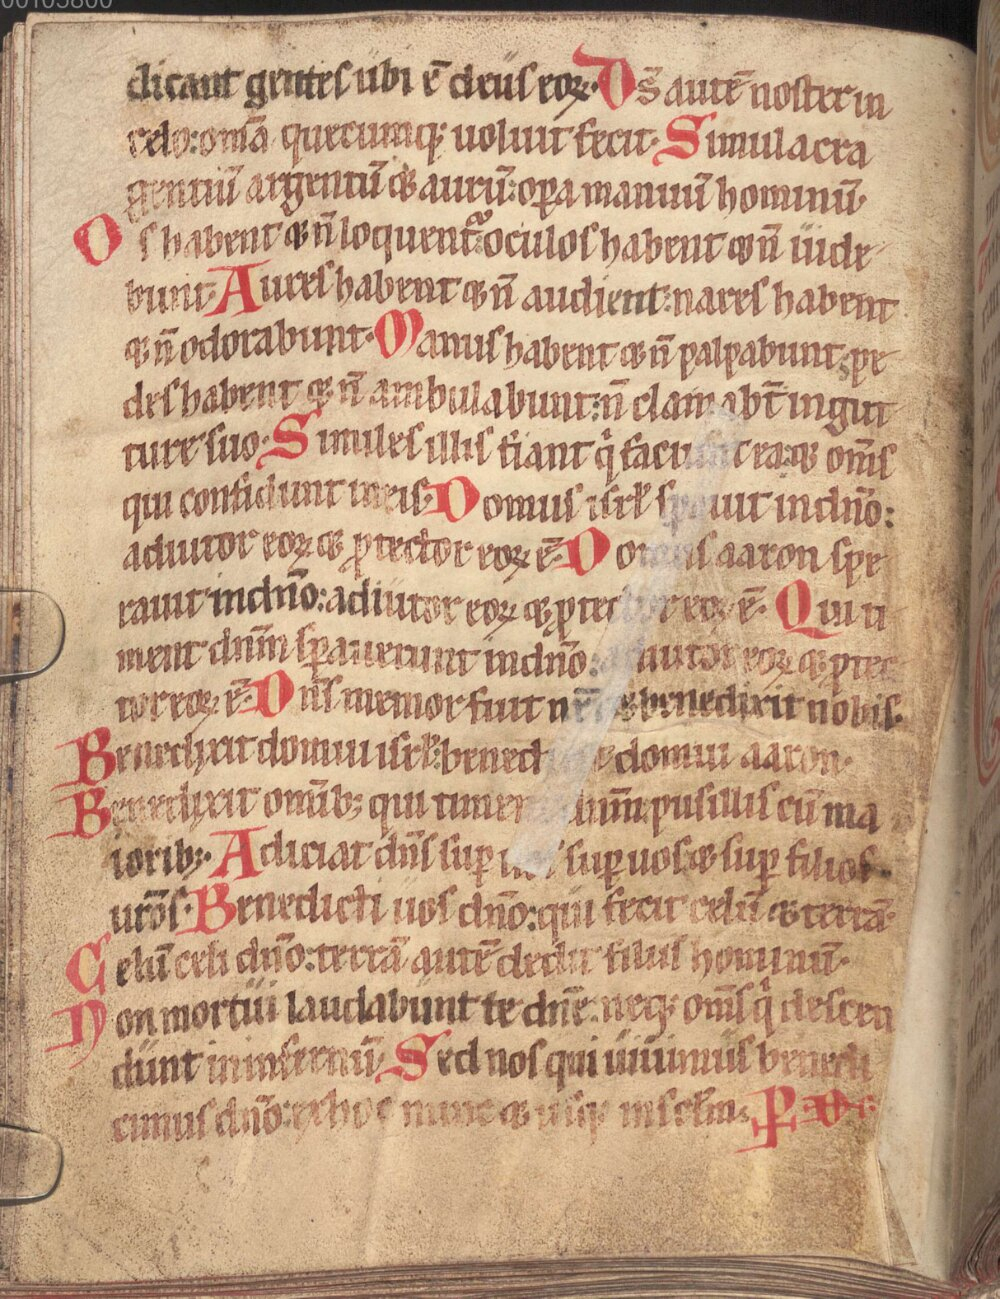 00105800
dicant gentes ubi ē deus eoꝝ· Ds̄ autē noster in
celo: om̄ia quecumq; uoluit fecit· Simulacra
gentiū argentū ⁊ aurū: oꝑa manuū hominū·
Os habent ⁊ n̄ loquent᷑: oculos habent ⁊ n̄ uide
bunt· Aures habent ⁊ n̄ audient: nares habent
⁊ n̄ odorabunt· Manus habent ⁊ n̄ palpabunt: pe
des habent ⁊ n̄ ambulabunt: n̄ clamabt̄ in gut
ture suo· Similes illis fiant q̄ faciunt ea: ⁊ om̄s
qui confidunt in eis· Domus isrł sꝑauit in dn̄o:
adiutor eoꝝ ⁊ ꝓtector eoꝝ ē· Domus aaron spe
rauit in dn̄o: adiutor eoꝝ ⁊ ꝓtector eoꝝ ē· Qui ti
ment dn̄m sꝑauerunt in dn̄o: adiutor eoꝝ ⁊ ꝓtec
tor eoꝝ ē· Dn̄s memor fuit nr̄i ⁊ benedixit nobis·
Benedixit domui isrł: benedixit domui aaron·
Benedixit om̄ib; qui timent dn̄m: pusillis cū ma
iorib;· Adiciat dn̄s suꝑ uos: suꝑ uos ⁊ suꝑ filios
ur̄os· Benedicti uos dn̄o: qui fecit celū ⁊ terrā·
Celū celi dn̄o: terrā autē dedit filiis hominū·
Non mortui laudabunt te dn̄e: neq; om̄s q̄ descen
dunt in infernū· Sed nos qui uiuimus benedi
cimus dn̄o: ex hoc nunc ⁊ usq; in sc̄lm·